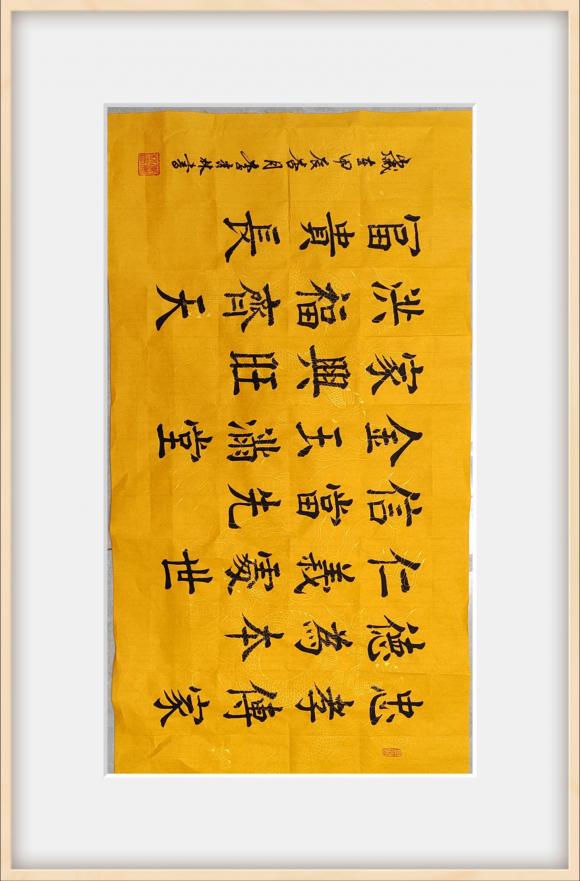 忠孝傳家
德為本
仁義處世
信當先
金玉滿堂
家興旺
洪福齊天
富貴長
甲辰 月李 林書